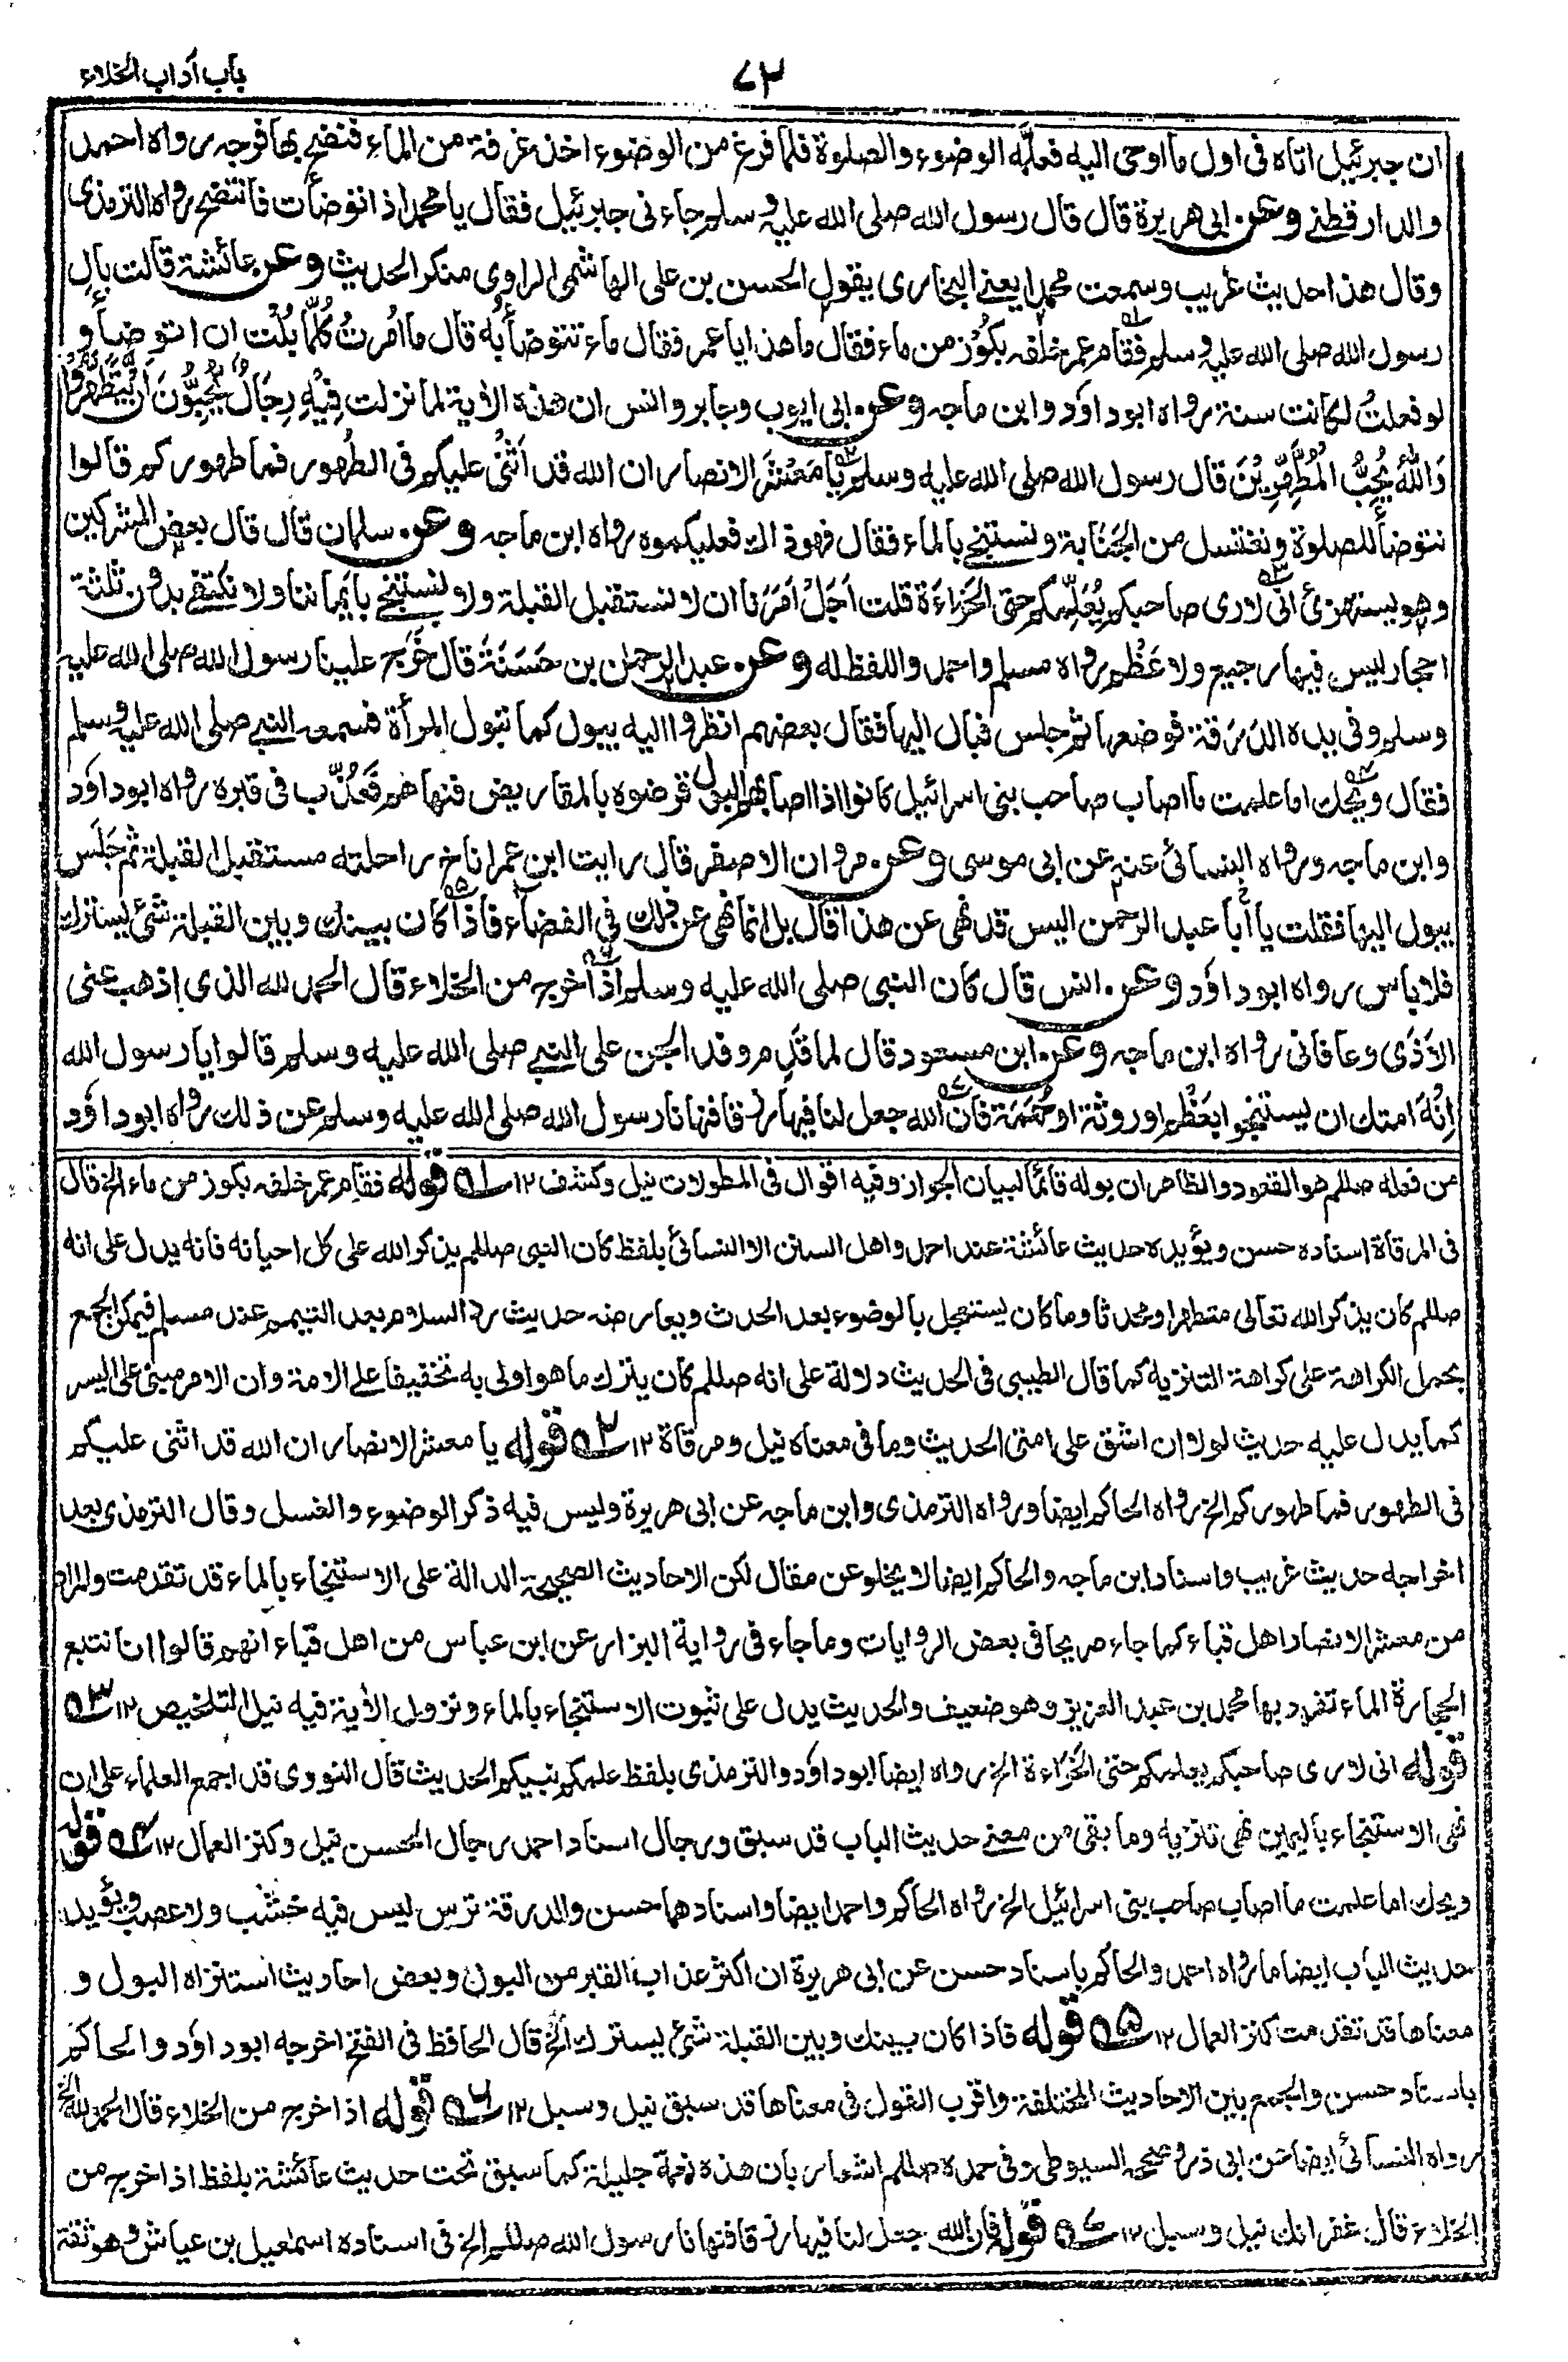 باب آداب الخلاء
٧٣
ان جبرئيل اتاه فى اول ما اوحى اليه فعلَّمه الوضوء والصلوة فلما فرغ من الوضوء اخذ غرفة من الماءِ فنضح بها فرجه رواه احمد
والدارقطنے وعن ابى هريرة قال قال رسول الله صلى الله عليه وسلم جاءنى جبرئيل فقال يا محمد اذا توضأت فانتضح رواه الترمذى
وقال هذا حديث غريب وسمعت محمدا يعنے البخارى يقول الحسن بن على الهاشمى الراوى منكر الحديث وعن عائشة قالت بال
رسول الله صلى الله عليه وسلم فقام عمر خلفه بكُوْز من ماء فقال ما هذا يا عمر فقال ماء تتوضأُ به قال ما اُمرتُ كُلَّما بُلْت ان اتوضأ و
لو فعلتُ لكانت سنة رواه ابو داؤد وابن ماجه وعن ابى ايوب وجابر وانس ان هذه الاٰية لما نزلت فِيْهِ رِجَالٌ يُّحِبُّوْنَ اَنْ يَّتَطَهَّرُوْا
وَاللّٰهُ يُحِبُّ الْمُطَّهِّرِيْنَ قال رسول الله صلى الله عليه وسلم يا مَعْشَرَ الانصار ان الله قد اَثْنٰى عليكم فى الطُهور فما طهوركم قالوا
نتوضأ للصلوة ونغتسل من الجَنَابة ونستنجے بالماء فقال فهو ذاك فعليكموه رواه ابن ماجه وعن سلمان قال قال بعض المشركين
وهو يستهزئ انى لارى صاحبكم يُعَلِّمكم حتى الخَراءَة قلت اَجَلْ اَمَرَنا ان لا نستقبل القبلة ولا نستنجے بايماننا ولا نكتفے بدون ثلثة
احجار ليس فيها رجيع ولا عَظْم رواه مسلم واحمد واللفظ له وعن عبد الرحمٰن بن حَسَنَةَ قال خَرَج علينا رسول الله صلى الله عليه
وسلم وفى يده الدَّرَقة فوضعها ثم جلس فبال اليها فقال بعضهم انظروا اليه يبول كما تبول المرأة فسمعه النبے صلى الله عليه وسلم
فقال ويحك اما علمت ما اصاب صاحب بنى اسرائيل كانوا اذا اصابهم البول قرضوه بالمقاريض فنهاهم فَعُذِّب فى قبره رواه ابو داؤد
وابن ماجه ورواه النسائى عنه عن ابى موسى وعن مروان الاصفر قال رايت ابن عمر اناخ راحلته مستقبل القبلة ثم جَلَس
يبول اليها فقلت يا اَبا عبد الرحمن اليس قد نهى عن هذا قال بل انما نهى عن ذلك فى الفضاء فاذا كان بينك وبين القبلة شئ يسترك
فلا باس رواه ابو داؤد وعن انس قال كان النبى صلى الله عليه وسلم اذا خرج من الخلاء قال الحمد لله الذى اذهب عنى
الاَذى وعافانى رواه ابن ماجه وعن ابن مسعود قال لما قدم وفد الجن على النبے صلى الله عليه وسلم قالوا يا رسول الله
اِنْهَ امتك ان يستنجوا بعَظْم او روثة او حُمَمَة فان الله جعل لنا فيها رزقا فنهانا رسول الله صلى الله عليه وسلم عن ذلك رواه ابو داؤد
من فعله صللم هو القعود والظاهر ان بوله قائما لبيان الجواز وفيه اقوال فى المطولات نيل وكشف ١٢ ١ قوله فقام عمر خلفه بكوز من ماء الخ قال
فى المرقاة اسناده حسن ويؤيده حديث عائشة عند احمد واهل السنن الا النسائى بلفظ كان النبى صللم يذكر الله على كل احيانه فانه يدل على انه
صللم كان يذكر الله تعالى متطهرا ومحدثا وما كان يستعجل بالوضوء بعد الحدث ويعارضه حديث رد السلام بعد التيمم عند مسلم فيمكن الجمع
بحمل الكراهة على كراهة التنزيه كما قال الطيبى فى الحديث دلالة على انه صللم كان يترك ما هو اولى به تخفيفا على الامة وان الامر مبنى على اليسر
كما يدل عليه حديث لولا ان اشق على امتى الحديث وما فى معناه نيل ومرقاة ١٢ ٢ قوله يا معشر الانصار ان الله قد اثنى عليكم
فى الطهور فما طهوركم الخ رواه الحاكم ايضا ورواه الترمذى وابن ماجه عن ابى هريرة وليس فيه ذكر الوضوء والغسل وقال الترمذى بعد
اخراجه حديث غريب واسناد ابن ماجه والحاكم ايضا لا يخلو عن مقال لكن الاحاديث الصحيحة الدالة على الاستنجاء بالماء قد تقدمت والمراد
من معشر الانصار اهل قباء كما جاء صريحا فى بعض الروايات وما جاء فى رواية البزار عن ابن عباس من اهل قباء انهم قالوا انا نتبع
الحجارة الماء تفرد بها محمد بن عبد العزيز وهو ضعيف والحديث يدل على ثبوت الاستنجاء بالماء ونزول الاٰية فيه نيل التلخيص ١٢ ٣
قوله انى لارى صاحبكم يعلمكم حتى الخَرَاءة الخ رواه ايضا ابو داؤد والترمذى بلفظ علمكم نبيكم الحديث قال النووى قد اجمع العلماء على ان
نهى الاستنجاء باليمين نهى تنزيه وما بقى من معنے حديث الباب قد سبق ورجال اسناد احمد رجال الحسن نيل وكنز العمال ١٢ ٤ قوله
ويحك اما علمت ما اصاب صاحب بنى اسرائيل الخ رواه الحاكم واحمد ايضا واسنادهما حسن والدرقة ترس ليس فيه خشب ولا عصب ويؤيد
حديث الباب ايضا ما رواه احمد والحاكم باسناد حسن عن ابى هريرة ان اكثر عذاب القبر من البول وبعض احاديث استنزاه البول و
معناها قد تقدمت كنز العمال ١٢ ٥ قوله فاذا كان بينك وبين القبلة شئ يسترك الخ قال الحافظ فى الفتح اخرجه ابو داؤد والحاكم
باسناد حسن والجمع بين الاحاديث المختلفة واقرب القول فى معناها قد سبق نيل وسبل ١٢ ٦ قوله اذا خرج من الخلاء قال الحمد لله الخ
رواه النسائى ايضا عن ابى ذر وصححه السيوطى وفى حمده صللم اشعار بان هذه نعمة جليلة كما سبق تحت حديث عائشة بلفظ اذا خرج من
الخلاء قال غفرانك نيل وسبل ١٢ ٧ قوله فان الله جعل لنا فيها رزقا فنهانا رسول الله صللم الخ فى اسناده اسمعيل بن عياش وهو ثقة